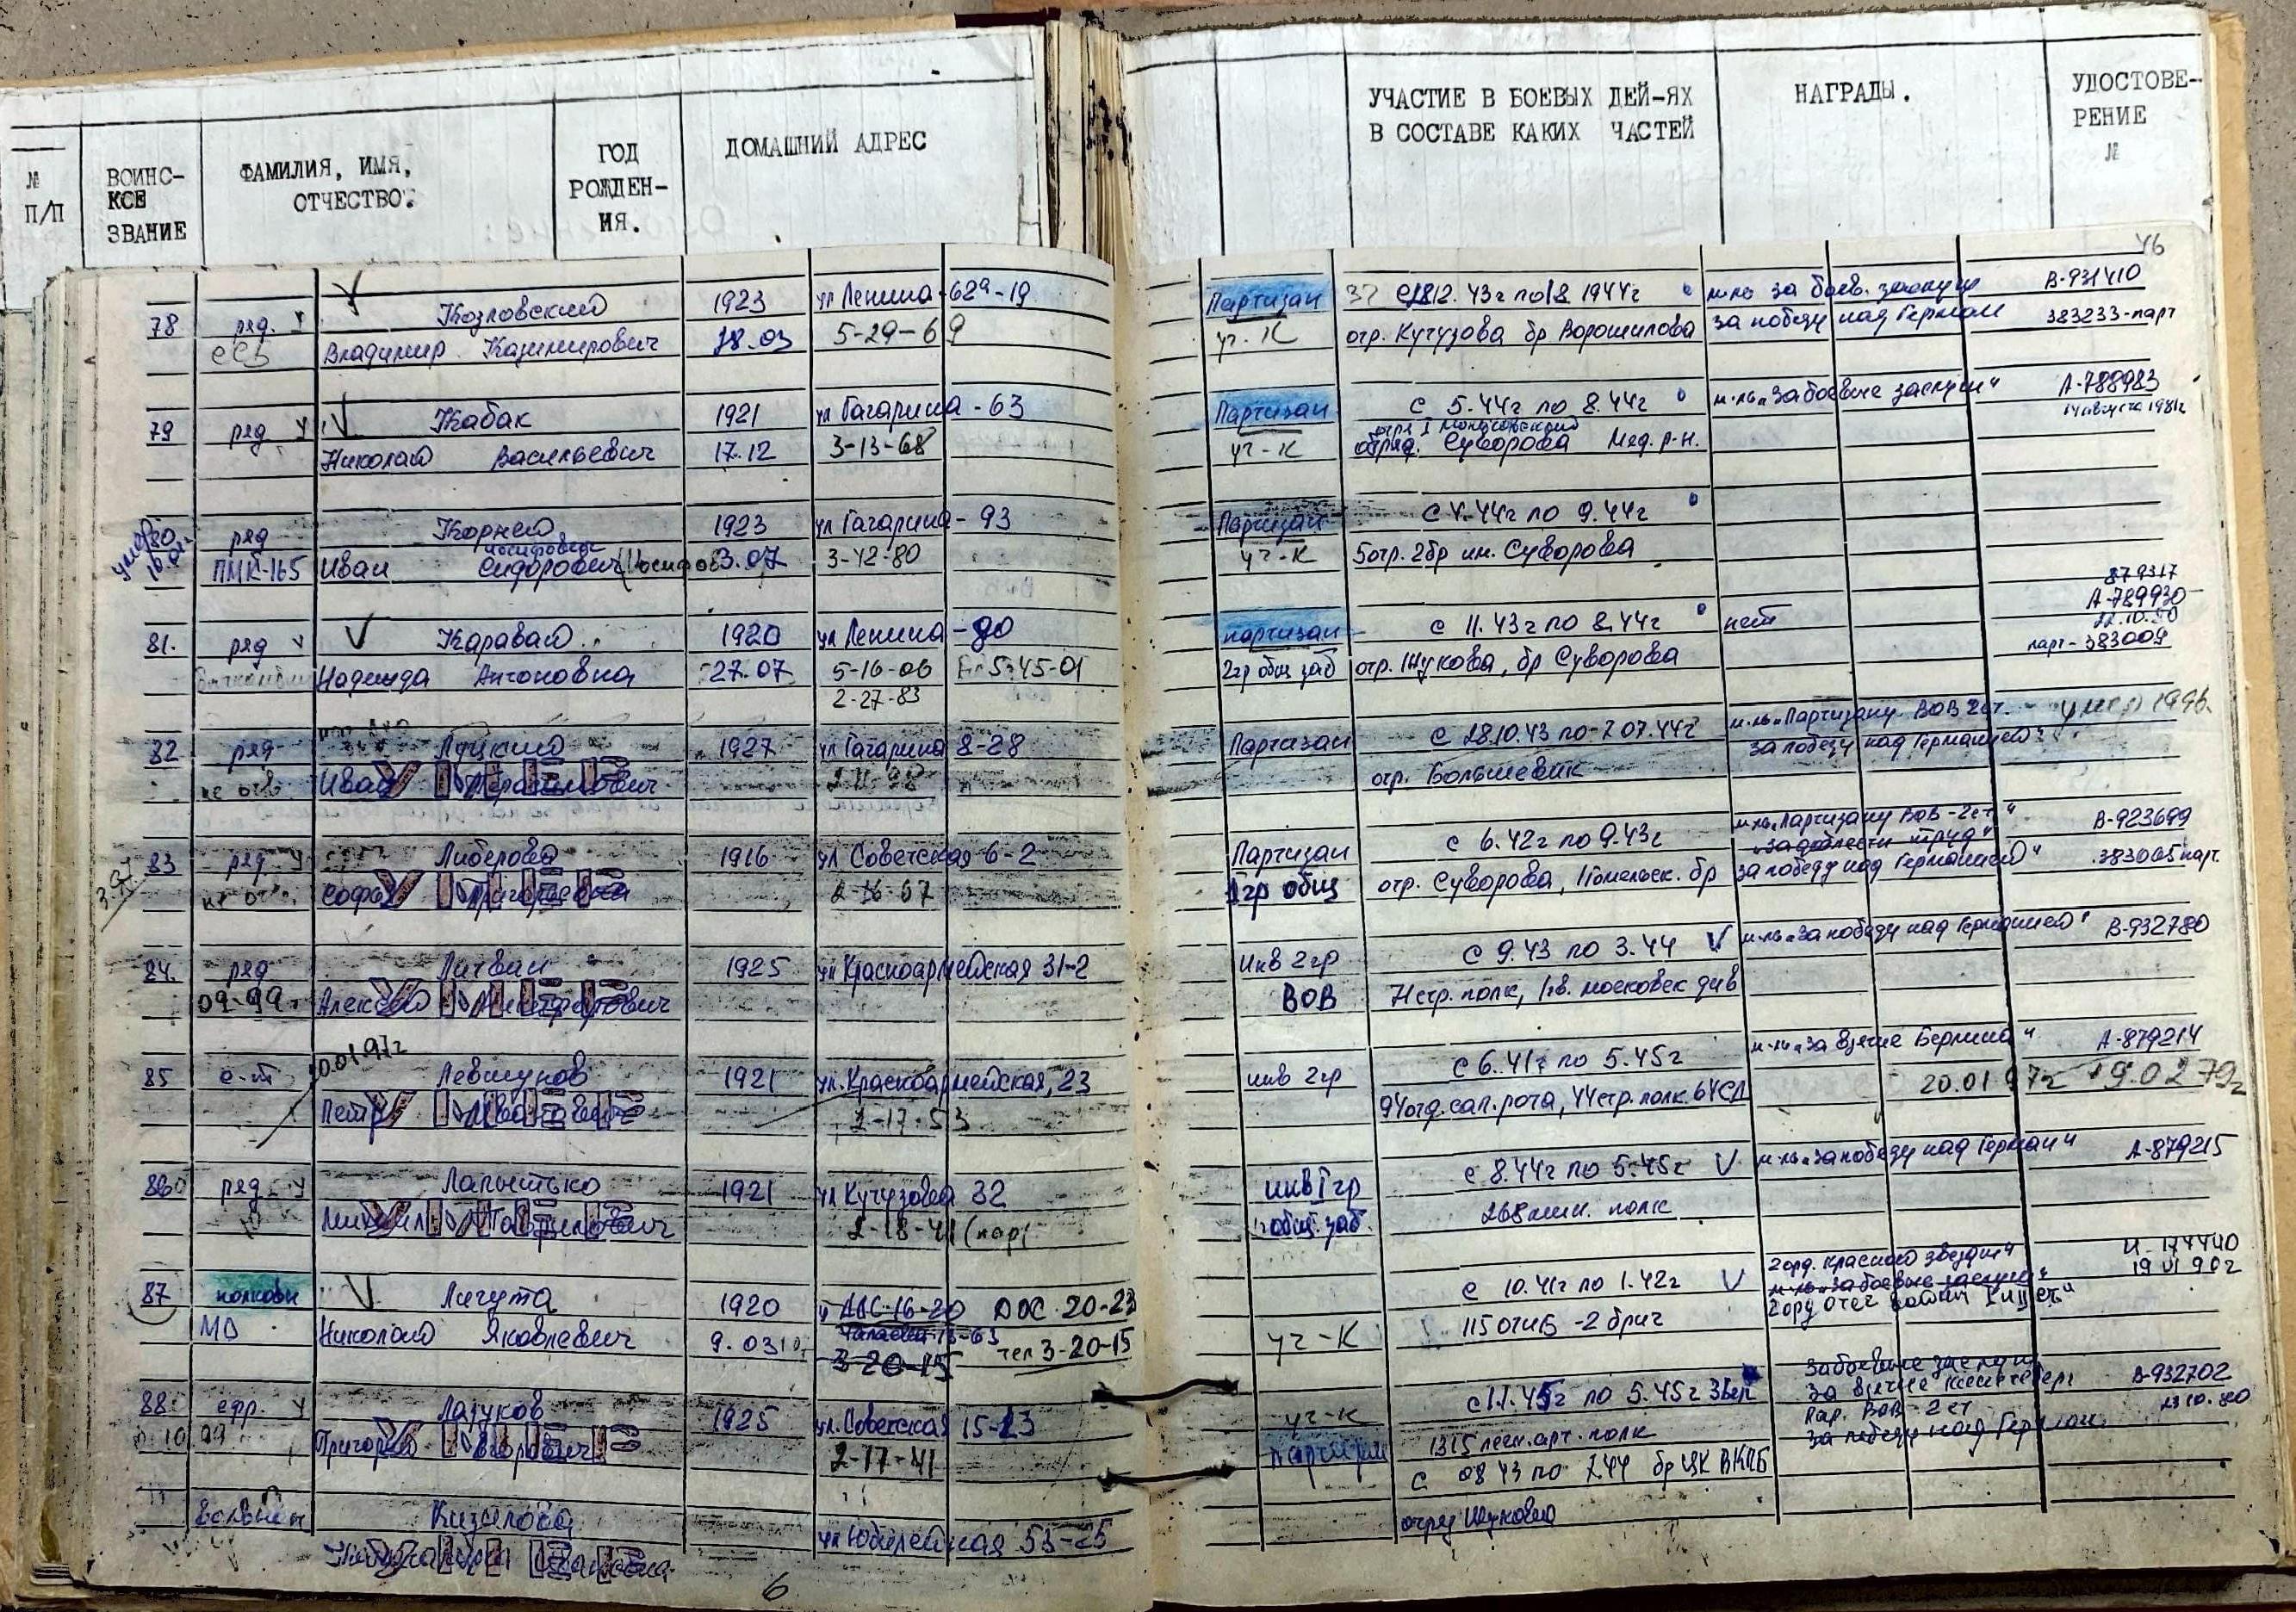 № П/П
ВОИНС-КОЕ ЗВАНИЕ
ФАМИЛИЯ, ИМЯ, ОТЧЕСТВО.
ГОД РОЖДЕН-ИЯ.
ДОМАШНИЙ АДРЕС
УЧАСТИЕ В БОЕВЫХ ДЕЙ-ЯХ В СОСТАВЕ КАКИХ ЧАСТЕЙ
НАГРАДЫ.
УДОСТОВЕ-РЕНИЕ №
46
78 ряд. Козловский 1923 ул Ленина-62а-19 Партизан с 12.43г по 8 1944г м-ль за боев. заслуги В-931410
Владимир Казимирович 18.03 5-29-69 уг-К отр. Кутузова бр Ворошилова за победу над Герман 383233-парт
79 ряд Кабак 1921 ул Гагарина-63 Партизан с 5.44г по 8.44г м-ль "За боевые заслуги" А-788983
14 августа 1981г
Николай Васильевич 17.12 3-13-68 уг-К отряд. Суворова Мяд. р-н.
80 ряд Корней 1923 ул Гагарина-93 Партизан с 4.44г по 9.44г
ПМК-165 Иван Сидорович 3.07 3-42-80 уг-К 5отр. 2бр им. Суворова
879317
А-789930
81. ряд Каравай 1920 ул Ленина-90 партизан с 11.43г по 8.44г нет 22.10.80
Надежда Антоновна 27.07 5-16-06 5-45-01 2гр общ заб отр. Жукова, бр Суворова парт-383009
2-27-83
82 ряд Луцкий 1927 ул Гагарина 8-28 Партизан с 28.10.43 по 7 07.44г м-ль "Партизану ВОВ 2ст. умер 1996.
Иван 2-11-98 отр. Большевик за победу над Германией"
83 ряд Либерова 1916 ул Советская 6-2 Партизан с 6.42г по 9.43г м-ль "Партизану ВОВ-2ст" В-923699
"за доблести труд"
Софья Григорьевна 2-16-07 1гр общ отр. Суворова, Гомельск. бр за победу над Германией" 383065 парт.
84. ряд Литван 1925 ул Красноармейская 31-2 Инв 2гр с 9.43 по 3.44 м-ль "За победу над Германией" В-932780
09-99г Алексей ВОВ 71 стр. полк, 1гв. московск див
20.01.97г
85 с-т Левшунов 1921 ул. Красноармейская, 23 инв 2гр с 6.41г по 5.45г м-ль "За взятие Берлина" А-879214
Петр 2-17-53 94отд. сап. рота, 44стр. полк 64СД 20.01 97г 19.02 79г
86 ряд Лапытько 1921 ул Кутузова 32 инв I гр с 8.44г по 5.45г м-ль "За победу над Герман" А-879215
Михаил Гаврилович 2-18-41 общ. заб. 268 мин. полк
87 полковн Лигута 1920 ДОС-16-20 ДОС 20-23 с 10.41г по 1.42г 2орд. Красной звезды"
м-ль "За боевые заслуги"
МО Николай Яковлевич 9.03 Чапаева-13-63 уг-К 115 отив -2 бриг
3-20-15 тел 3-20-15
88. ефр. Лазуков 1925 ул. Советская 15-13 уг-К с 1.45г по 5.45г За боевые заслуги В-932702
Григорий Егорович 2-17-41 партизан За взятие Кенигсберг 23 10.80
Пар. ВОВ-2ст
За победу над Герман.
с 08 43 по 7.44 бр ЦК ВКПБ
отряд Жукова
Кизилова ул Юбилейная 53-25
6